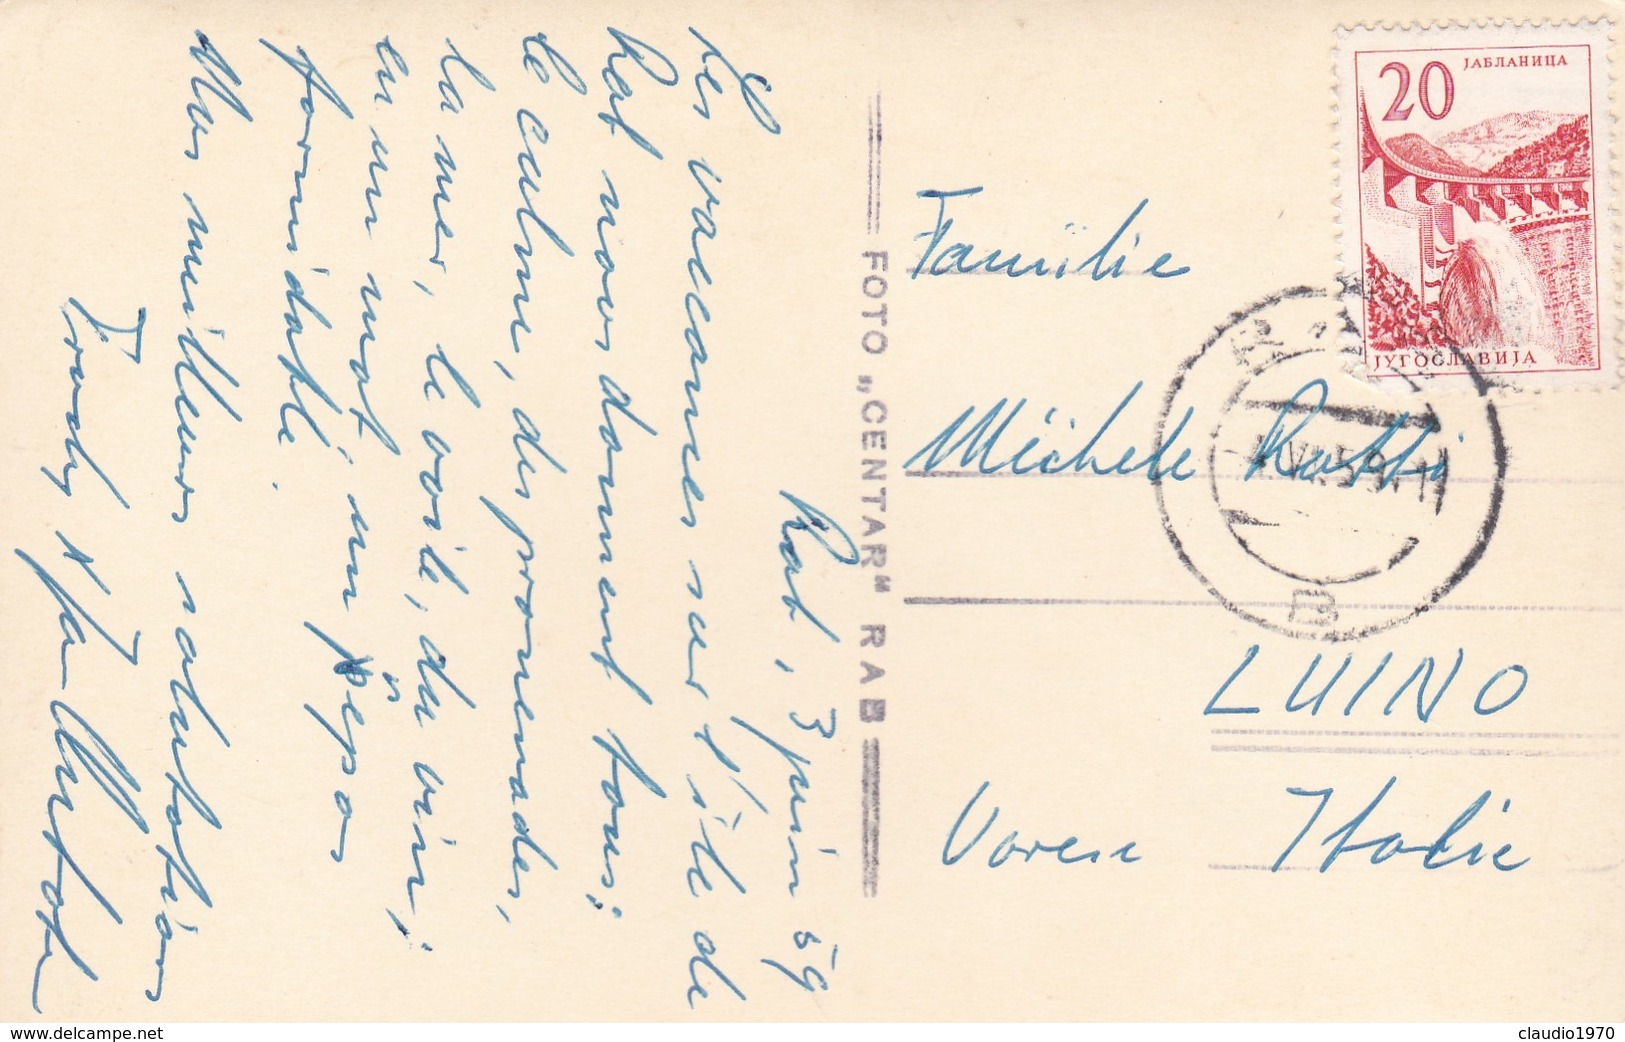 Rab, 3 juin 59
Les vaccances sur l'île de
Rab nous donnent tous:
le calme, des promenades,
la mer, le voile, du vin;
en un mot: un repos
formidable.
Mes meilleures salutations
Trudy
FOTO „CENTAR" RAB
20
ЈАБЛАНИЦА
ЈУГОСЛАВИЈА
Familie
Michele Ratti
LUINO
Varese Italie
VI. 59. 11
B
claudio1970